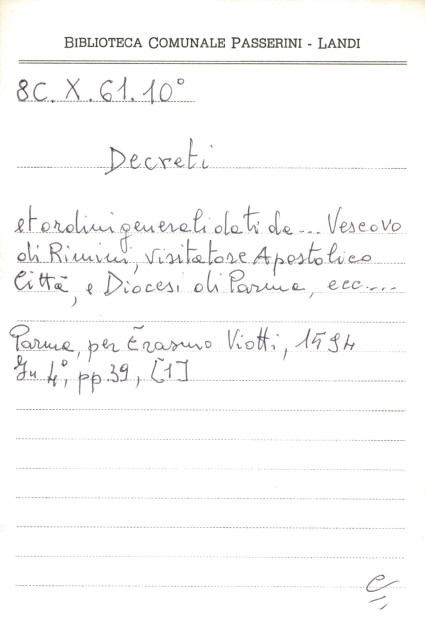 BIBLIOTECA COMUNALE PASSERINI - LANDI
8C. X. 61. 10°
Decreti
et ordini generali dati da ... Vescovo
di Rimini, visitatore Apostolico
Città, e Diocesi di Parma, ecc....
Parma, per Erasmo Viotti, 1594
In 4°, pp. 39, [1]
e